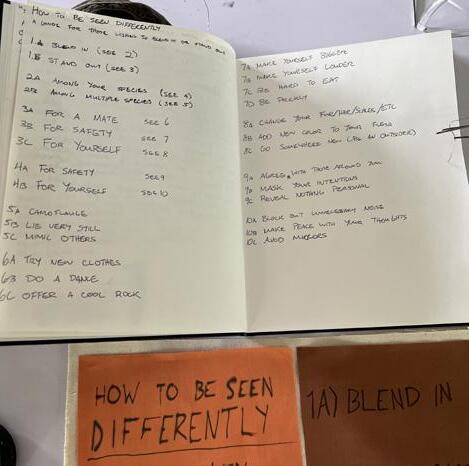 HOW TO BE SEEN DIFFERENTLY
A GUIDE FOR THOSE LOOKING TO BLEND IN OR STAND OUT
1.A BLEND IN (SEE 2)
1.B STAND OUT (SEE 3)
2A AMONG YOUR SPECIES (SEE 4)
2B AMONG MULTIPLE SPECIES (SEE 5)
3A FOR A MATE SEE 6
3B FOR SAFETY SEE 7
3C FOR YOURSELF SEE 8
4A FOR SAFETY SEE 9
4B FOR YOURSELF SEE 10
5A CAMOFLAUGE
5B LIE VERY STILL
5C MIMIC OTHERS
6A TRY NEW CLOTHES
6B DO A DANCE
6C OFFER A COOL ROCK
7A MAKE YOURSELF BIGGER
7B MAKE YOURSELF LOUDER
7C BE HARD TO EAT
7D BE PRICKLY
8A CHANGE YOUR FUR/HAIR/SCALES/ETC
8B ADD NEW COLOR TO YOUR FLESH
8C GO SOMEWHERE NEW (BE AN OUTSIDER)
9A AGREE WITH THOSE AROUND YOU
9B MASK YOUR INTENTIONS
9C REVEAL NOTHING PERSONAL
10A BLOCK OUT UNNECESSARY NOISE
10B MAKE PEACE WITH YOUR THOUGHTS
10C AVOID MIRRORS
HOW TO BE SEEN
DIFFERENTLY
1A) BLEND IN